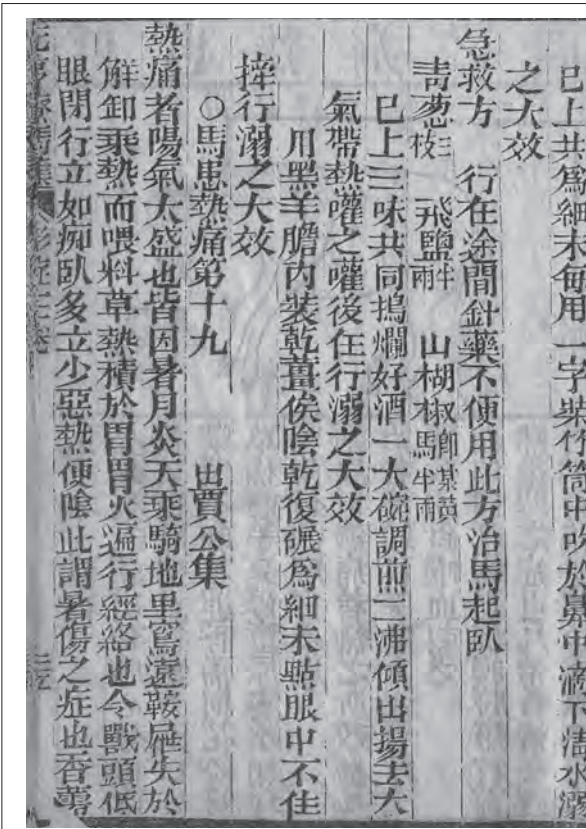 已上共為細末每用一字裝竹筒中吹於鼻中滴下清水溺
之大效
急救方　行在途間針藥不便用此方治馬起臥
青葱三枝　飛鹽半兩　山胡椒即菜黃馬半兩
已上三味共同搗爛好酒一大碗調煎二沸傾出揚去大
氣帶熱嚾之嚾後住行溺之大效
用黑羊膽內裝乾薑俟陰乾復碾為細末點眼中不住
摔行溺之大效
○馬患熱痛第十九　出賈公集
熱痛者陽氣太盛也皆因暑月炎天乘騎地里窎遠鞍屜失於
解卸乘熱而喂料草熱積於胃胃火遍行經絡也令獸頭低
眼閉行立如痴臥多立少惡熱便陰此謂暑傷之症也香薷
元亨療馬集